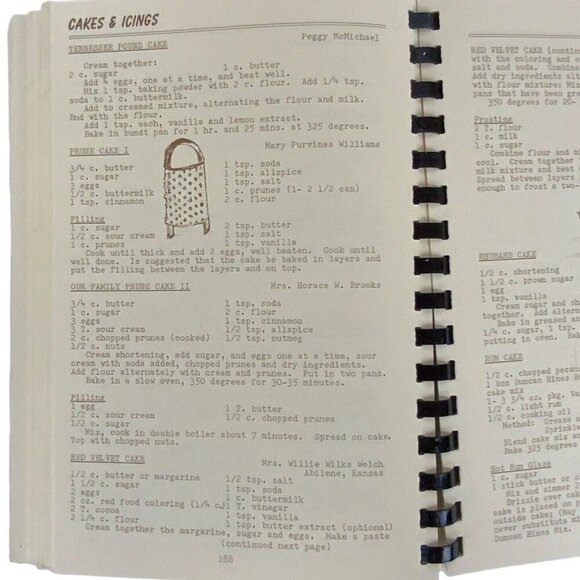 CAKES & ICINGS
TENNESSEE POUND CAKE Peggy McMichael
Cream together: 1 c. butter
2 c. sugar
Add 4 eggs, one at a time, and beat well.
Mix 1 tsp. baking powder with 2 c. flour. Add 1/4 tsp.
soda to 1 c. buttermilk.
Add to creamed mixture, alternating the flour and milk.
End with the flour.
Add 1 tsp. each, vanilla and lemon extract.
Bake in bundt pan for 1 hr. and 25 mins. at 325 degrees.
PRUNE CAKE I Mary Purvines Williams
3/4 c. butter 1 tsp. soda
1 c. sugar 1 tsp. allspice
3 eggs 1 tsp. salt
1/2 c. buttermilk 1 c. prunes (1- 2 1/2 can)
1 tsp. cinnamon 2 c. flour
Filling
1 c. sugar 2 tsp. butter
1/2 c. sour cream 1 tsp. salt
1 c. prunes 1 tsp. vanilla
Cook until thick and add 2 eggs, well beaten. Cook until
well done. Is suggested that the cake be baked in layers and
put the filling between the layers and on top.
OUR FAMILY PRUNE CAKE II Mrs. Horace W. Brooks
3/4 c. butter 1 tsp. soda
1 c. sugar 2 c. flour
3 eggs 1 tsp. cinnamon
3 T. sour cream 1/2 tsp. allspice
2 c. chopped prunes (cooked) 1/2 tsp. nutmeg
1/2 c. nuts
Cream shortening, add sugar, and eggs one at a time, sour
cream with soda added, chopped prunes and dry ingredients.
Add flour alternately with cream and prunes. Put in two pans.
Bake in a slow oven, 350 degrees for 30-35 minutes.
Filling
1 egg 1 T. butter
1/2 c. sour cream 1/2 c. chopped prunes
1/2 c. sugar
Mix, cook in double boiler about 7 minutes. Spread on cake.
Top with chopped nuts.
RED VELVET CAKE Mrs. Willie Wilks Welch
Abilene, Kansas
1/2 c. butter or margarine 1/2 tsp. salt
1 1/2 c. sugar 1 tsp. soda
2 eggs 1 c. buttermilk
2 oz. red food coloring (1/4 c.) 1 T. vinegar
2 T. cocoa 1 tsp. vanilla
2 1/4 c. flour 1 tsp. butter extract (optional)
Cream together the margarine, sugar and eggs. Make a paste
(continued next page)
188
RED VELVET CAKE (continued
with the coloring and
salt and soda. Combine
Add dry ingredients
with flour mixture: Mix
pans that have been
350 degrees for 20-
Frosting
2 T. flour
1 c. milk
1 c. sugar
Combine flour and
cool. Cream together
milk mixture and beat
Spread between layers
enough to frost a two-
RHUBARB CAKE
1/2 c. shortening
1 1/2 c. brown sugar
1 egg
1 tsp. vanilla
Cream sugar and
together. Add
1/4 c. sugar, 1 tsp.
putting in oven.
Bake in greased and
RUM CAKE
1/2 c. chopped
1 box Duncan Hines
cake mix
1- 3 3/4 oz. pkg.
1/2 c. light rum
1/2 c. cooking oil
Method: Grease
Blend cake mix
Bake 325 degrees
Hot Rum Glaze
1 c. sugar
1 stick butter or
Mix and simmer 2
Drizzle over cake
cake is placed on
outside cake;
never substitute
Duncan Hines Mix.